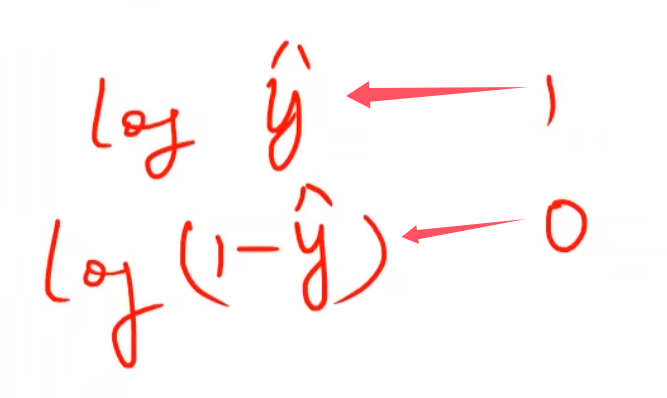 log ŷ 1
log (1-ŷ) 0